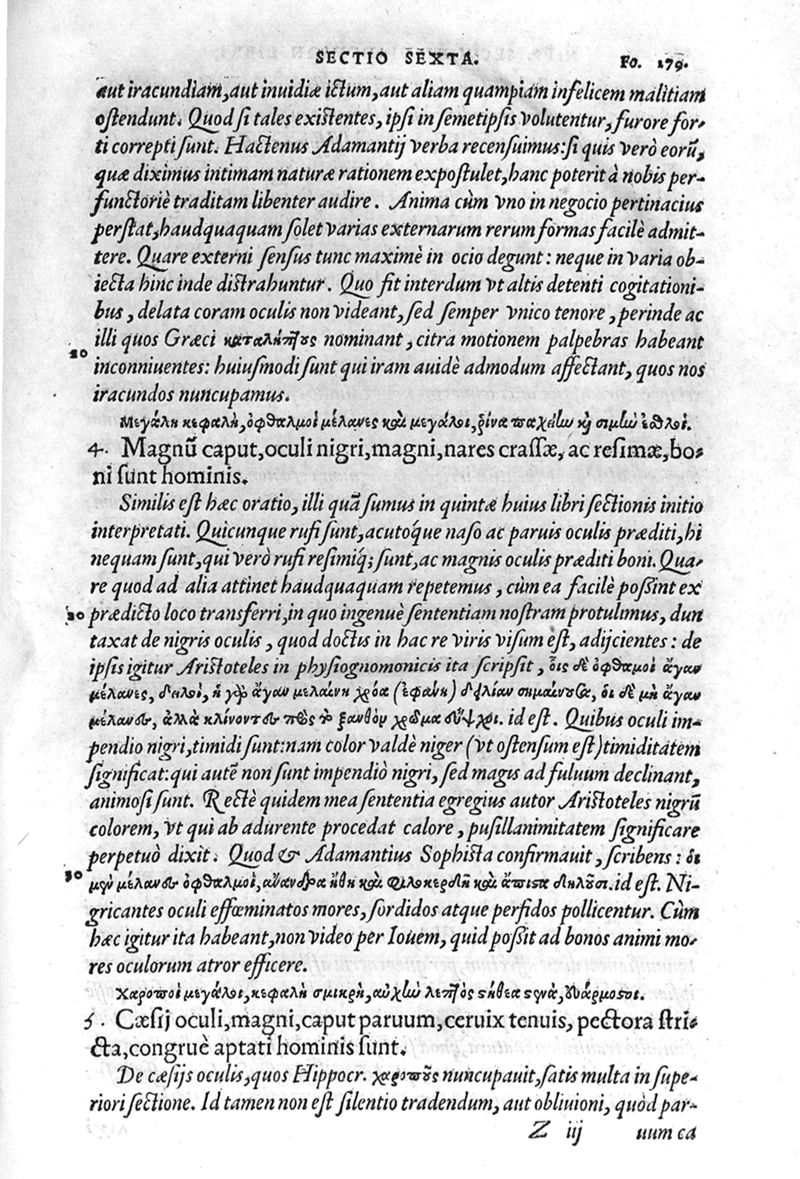 SECTIO SEXTA. Fo. 179.
aut iracundiam, aut inuidiæ ictum, aut aliam quampiam infelicem malitiam
ostendunt. Quod si tales existentes, ipsi in semetipsis volutentur, furore for-
ti correpti sunt. Hactenus Adamantij verba recensuimus: si quis verò eorũ,
quæ diximus intimam naturæ rationem expostulet, hanc poterit à nobis per-
functoriè traditam libenter audire. Anima cùm vno in negocio pertinacius
perstat, haudquaquam solet varias externarum rerum formas facilè admit-
tere. Quare externi sensus tunc maximè in ocio degunt: neque in varia ob-
iecta hinc inde distrahuntur. Quo fit interdum vt altis detenti cogitationi-
bus, delata coram oculis non videant, sed semper vnico tenore, perinde ac
illi quos Græci nominant, citra motionem palpebras habeant
inconniuentes: huiusmodi sunt qui iram auidè admodum affectant, quos nos
iracundos nuncupamus.
Μεγάλη κεφαλὴ, ὀφθαλμοὶ μέλανες καὶ μεγάλοι, ῥῖνα παχεῖαν καὶ σιμὴν ἐσθλοί.
4. Magnũ caput, oculi nigri, magni, nares crassæ, ac resimæ, bo-
ni sunt hominis.
Similis est hæc oratio, illi quã sumus in quintæ huius libri sectionis initio
interpretati. Quicunque rufi sunt, acutoq́ue naso ac paruis oculis præditi, hi
nequam sunt, qui verò rufi resimiq́; sunt, ac magnis oculis præditi boni. Qua-
re quod ad alia attinet haudquaquam repetemus, cùm ea facilè possint ex
20 prædicto loco transferri, in quo ingenuè sententiam nostram protulimus, dun
taxat de nigris oculis, quod doctis in hac re viris visum est, adijcientes: de
ipsis igitur Aristoteles in physiognomonicis ita scripsit, οἷς δὲ ὀφθαμοὶ ἄγαν
μέλανες, δειλοί, ἡ γὰρ ἄγαν μελαίνη χρόα (ἐφάνη) δειλίαν σημαίνουσα, οἱ δὲ μὴ ἄγαν
μέλανες, ἀλλὰ κλίνοντες πρὸς τὸ ξανθὸν χρῶμα εὔψυχοι. id est. Quibus oculi im-
pendio nigri, timidi sunt: nam color valdè niger (vt ostensum est) timiditatem
significat: qui autẽ non sunt impendiò nigri, sed magis ad fuluum declinant,
animosi sunt. Rectè quidem mea sententia egregius autor Aristoteles nigrũ
colorem, vt qui ab adurente procedat calore, pusillanimitatem significare
perpetuò dixit. Quod & Adamantius Sophista confirmauit, scribens: οἱ
30 μὲν μέλανες ὀφθαλμοὶ, ἄνανδρα ἤθη καὶ φιλοκερδῆ καὶ ἄπιστα δηλοῦσι. id est. Ni-
gricantes oculi effœminatos mores, sordidos atque perfidos pollicentur. Cùm
hæc igitur ita habeant, non video per Iouem, quid possit ad bonos animi mo-
res oculorum atror efficere.
Χαροποὶ μεγάλοι, κεφαλὴ σμικρὴ, αὐχὴν λεπτὸς στήθεα στενὰ, εὐάρμοστοι.
5. Cæsij oculi, magni, caput paruum, ceruix tenuis, pectora stri-
cta, congruè aptati hominis sunt.
De cæsijs oculis, quos Hippocr. χαροποὺς nuncupauit, satis multa in supe-
riori sectione. Id tamen non est silentio tradendum, aut obliuioni, quòd par-
Z iij uum ca